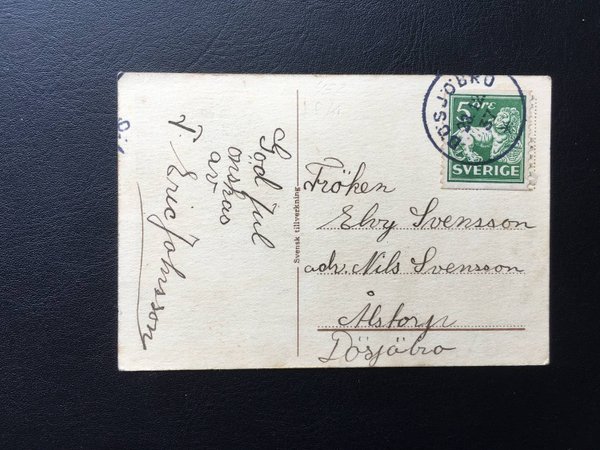 God Jul
önskas
av
T. Eric Johnsson
Svensk tillverkning
DÖSJÖBRO
5 ÖRE
SVERIGE
Fröken
Elvy Svensson
adr. Nils Svensson
Ålstorp
Dösjöbro